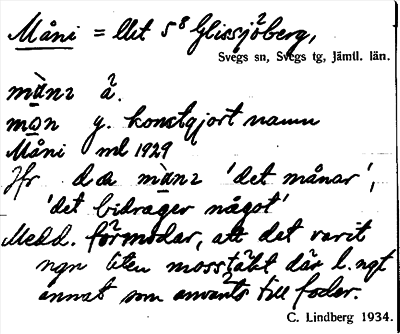 Måni = Utt 5⁸ Glissjöberg,
Svegs sn, Svegs tg, Jämtl. län.
månı å².
mon y. konstgjort namn
Måni ml 1929
Jfr d.a. månı 'det månar',
'det bidrager något'
Medd. förmodar, att det varit
ngn liten mosstäkt där l. ngt
annat som använts till foder.
C. Lindberg 1934.